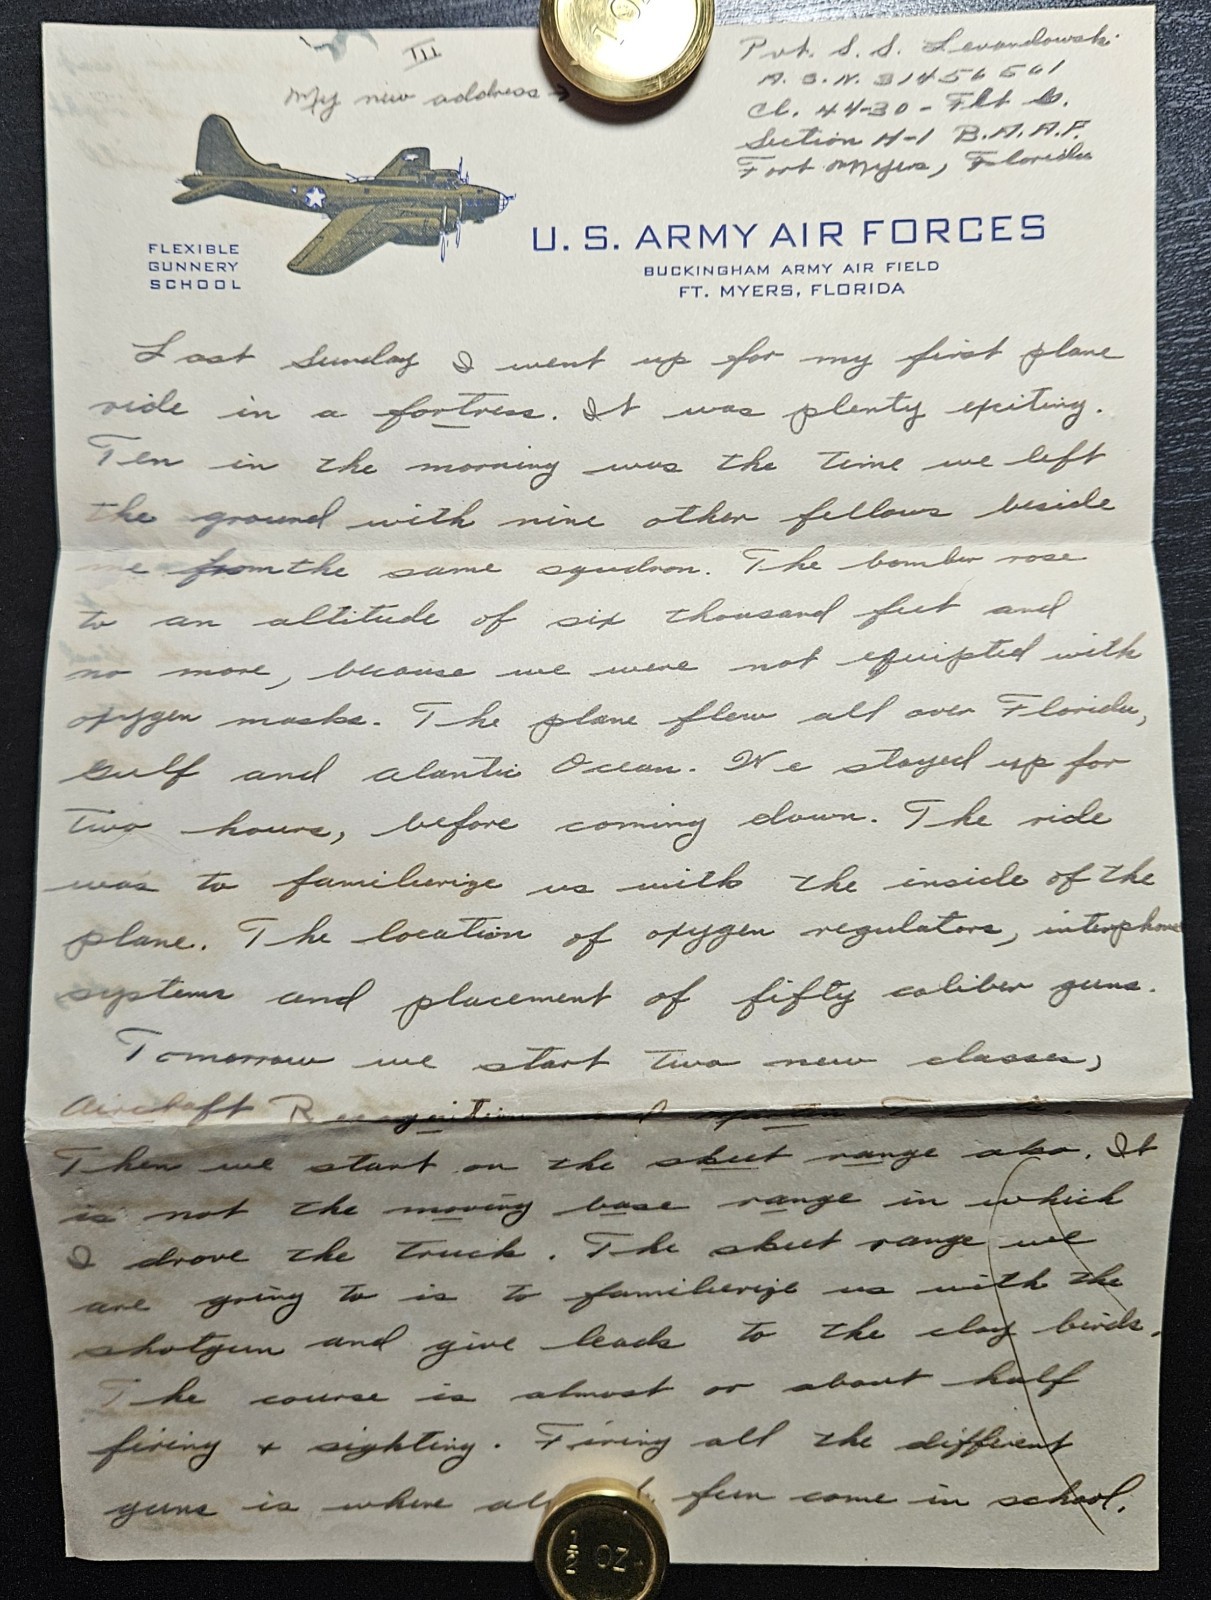 III
My new address →
Pvt. S. S. Levandowski
A.S.N. 31456561
Cl. 44-30 - Flt
Section H-1 B.A.A.F.
Fort Myers, Florida
FLEXIBLE
GUNNERY
SCHOOL
U. S. ARMY AIR FORCES
BUCKINGHAM ARMY AIR FIELD
FT. MYERS, FLORIDA
Last Sunday I went up for my first plane
ride in a fortress. It was plenty exciting.
Ten in the morning was the time we left
the ground with nine other fellows beside
me from the same squdron. The bomber rose
to an altitude of six thousand feet and
no more, because we were not equipted with
oxygen masks. The plane flew all over Florida,
Gulf and alantic Ocean. We stayed up for
two hours, before coming down. The ride
was to familierize us with the inside of the
plane. The location of oxygen regulators, interphone
systems and placement of fifty caliber guns.
Tomorrow we start two new classes,
Aircraft Recognition and
Then we start on the skeet range also. It
is not the moving base range in which
I drove the truck. The skeet range we
are going to is to familierize us with the
shotgun and give leads to the clay birds.
The course is almost or about half
firing + sighting. Firing all the different
guns is where fun come in school.
1/2 OZ.